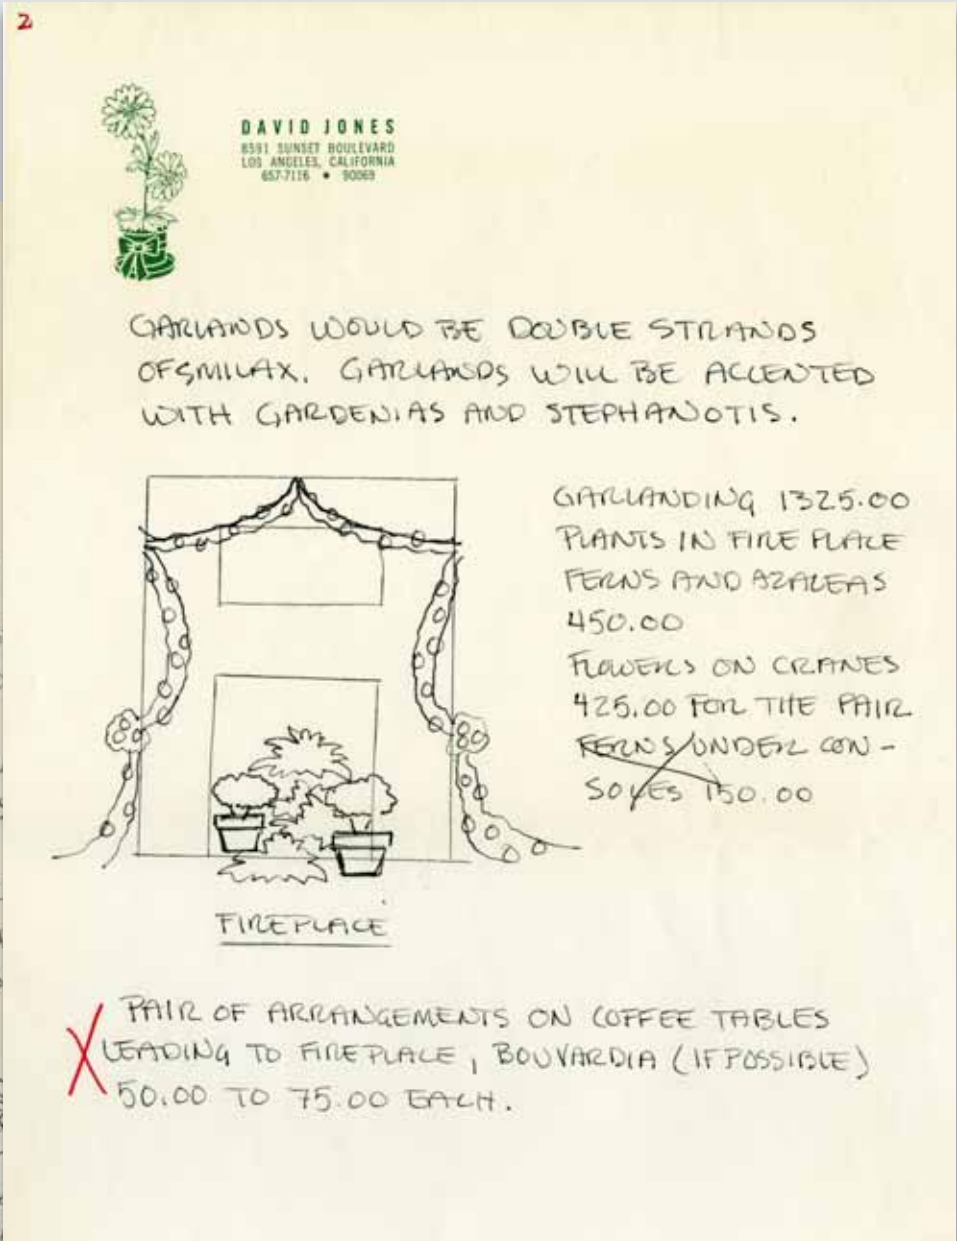 2
DAVID JONES
8591 SUNSET BOULEVARD
LOS ANGELES, CALIFORNIA
657-7116 • 90069
GARLANDS WOULD BE DOUBLE STRANDS
OF SMILAX. GARLANDS WILL BE ACCENTED
WITH GARDENIAS AND STEPHANOTIS.
GARLANDING 1325.00
PLANTS IN FIRE PLACE
FERNS AND AZALEAS
450.00
FLOWERS ON CRANES
425.00 FOR THE PAIR
FERNS UNDER CON-
SOLES 150.00
FIREPLACE
X PAIR OF ARRANGEMENTS ON COFFEE TABLES
LEADING TO FIREPLACE, BOUVARDIA (IF POSSIBLE)
50.00 TO 75.00 EACH.